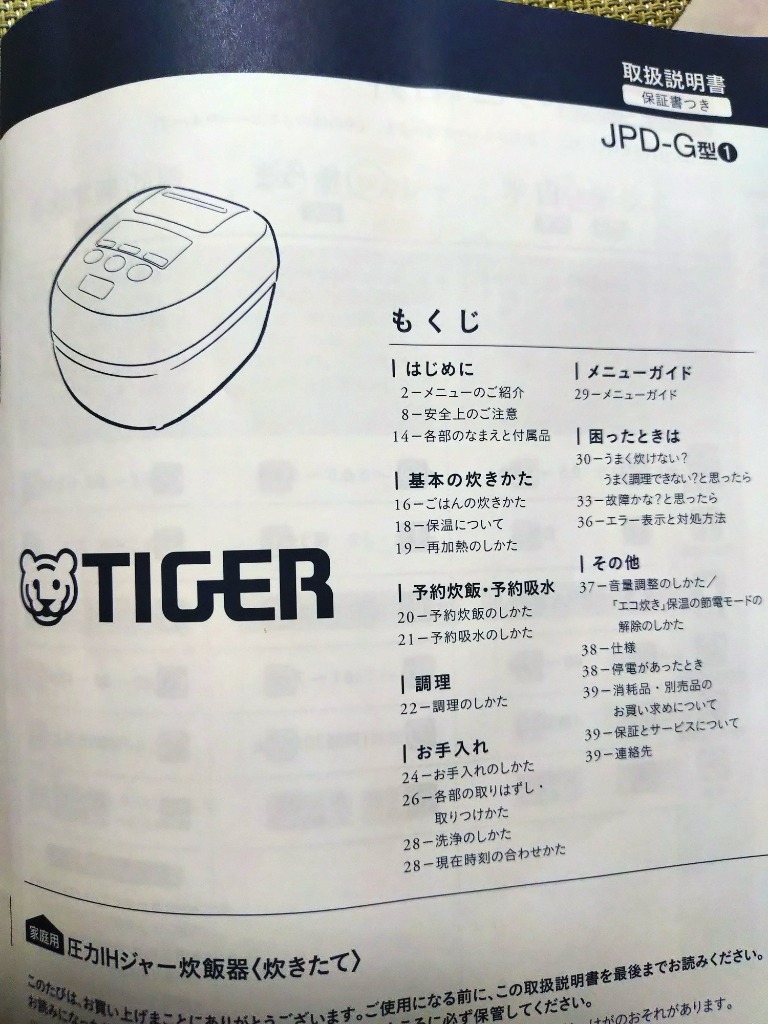 取扱説明書
保証書つき
JPD-G型❶
もくじ
はじめに
2－メニューのご紹介
8－安全上のご注意
14－各部のなまえと付属品
基本の炊きかた
16－ごはんの炊きかた
18－保温について
19－再加熱のしかた
予約炊飯・予約吸水
20－予約炊飯のしかた
21－予約吸水のしかた
調理
22－調理のしかた
お手入れ
24－お手入れのしかた
26－各部の取りはずし・
取りつけかた
28－洗浄のしかた
28－現在時刻の合わせかた
メニューガイド
29－メニューガイド
困ったときは
30－うまく炊けない？
うまく調理できない？と思ったら
33－故障かな？と思ったら
36－エラー表示と対処方法
その他
37－音量調整のしかた／
「エコ炊き」保温の節電モードの
解除のしかた
38－仕様
38－停電があったとき
39－消耗品・別売品の
お買い求めについて
39－保証とサービスについて
39－連絡先
TIGER
家庭用
圧力IHジャー炊飯器〈炊きたて〉
このたびは、お買い上げまことにありがとうございます。ご使用になる前に、この取扱説明書を最後までお読みください。
お読みになった
ころに必ず保管してください。
けがのおそれがあります。